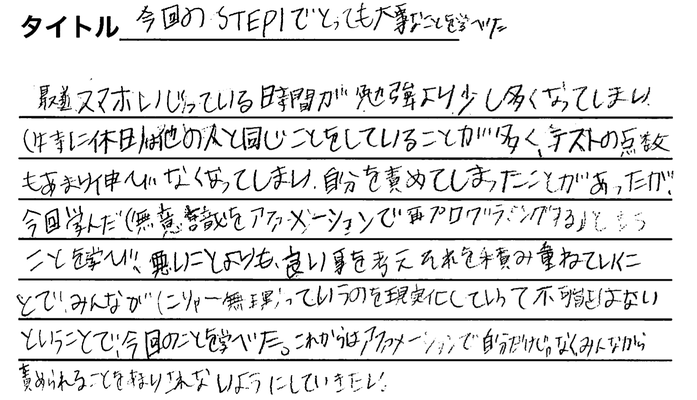 タイトル 今回のSTEP1でとっても大事なことを学べた
最近スマホいじっている時間が勉強より少し多くなってしまい、
(特に休日は他の人と同じことをしていることが多く、テストの点数
もあまり伸びなくなってしまい、自分を責めてしまったことがあったが、
今回学んだ「無意識をアファメーションで再プログラミングする」という
ことを学べ、悪いことよりも、良い事を考えそれを積み重ねていくこ
とで、みんなが「こりゃー無理」っていうのを現実化していって不可能はない
ということで、今回のことを学べた。これからはアファメーションで自分だけじゃなくみんなから
責められることを されないようにしていきたい。